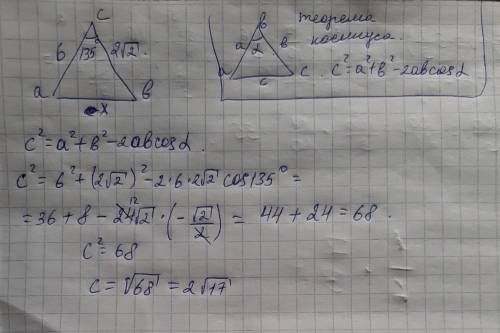 C
6 135 2√2
a b
x
b
a α b
a c c
теорема
косинуса.
c² = a² + b² - 2ab cos α
c² = a² + b² - 2ab cos α.
c² = 6² + (2√2)² - 2·6·2√2 cos 135° =
= 36 + 8 - 24√2 · (-√2/2) = 44 + 24 = 68.
12
c² = 68
c = √68 = 2√17